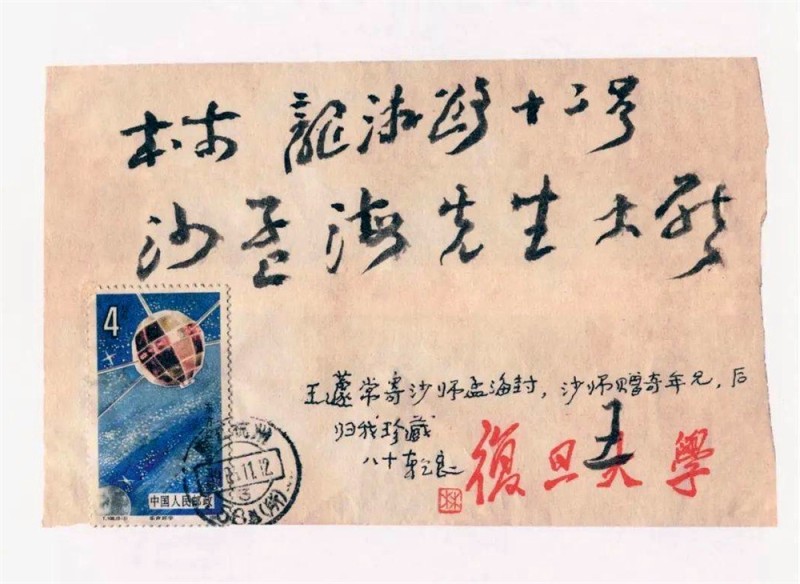 本市 龍游路十二号
沙孟海先生大啟
4
王蘧常寄沙师孟海封，沙师赠奇年兄，后
归我珍藏
八十乾良
復旦大學
王
杭州
11.12
中国人民邮政